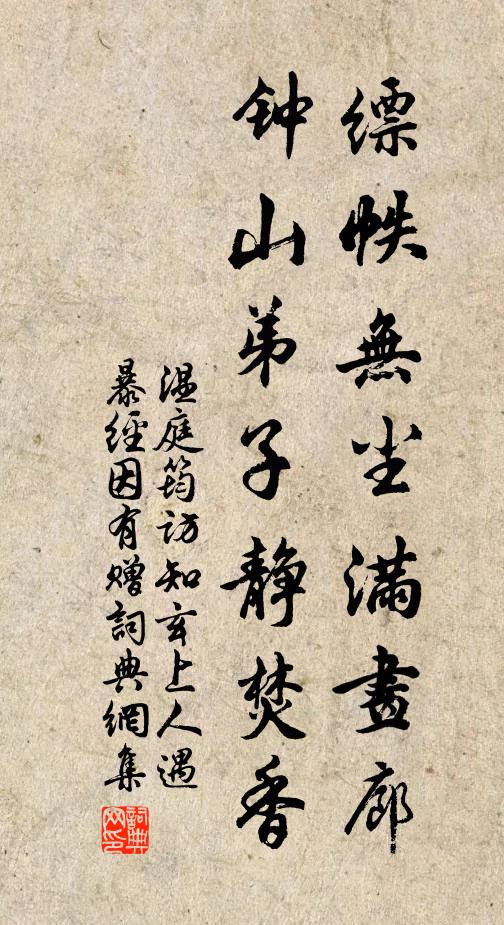 缥帙無尘满畫廊
钟山弟子静焚香
温庭筠访知玄上人遇
暴經因有赠詞典網集
詞典网印